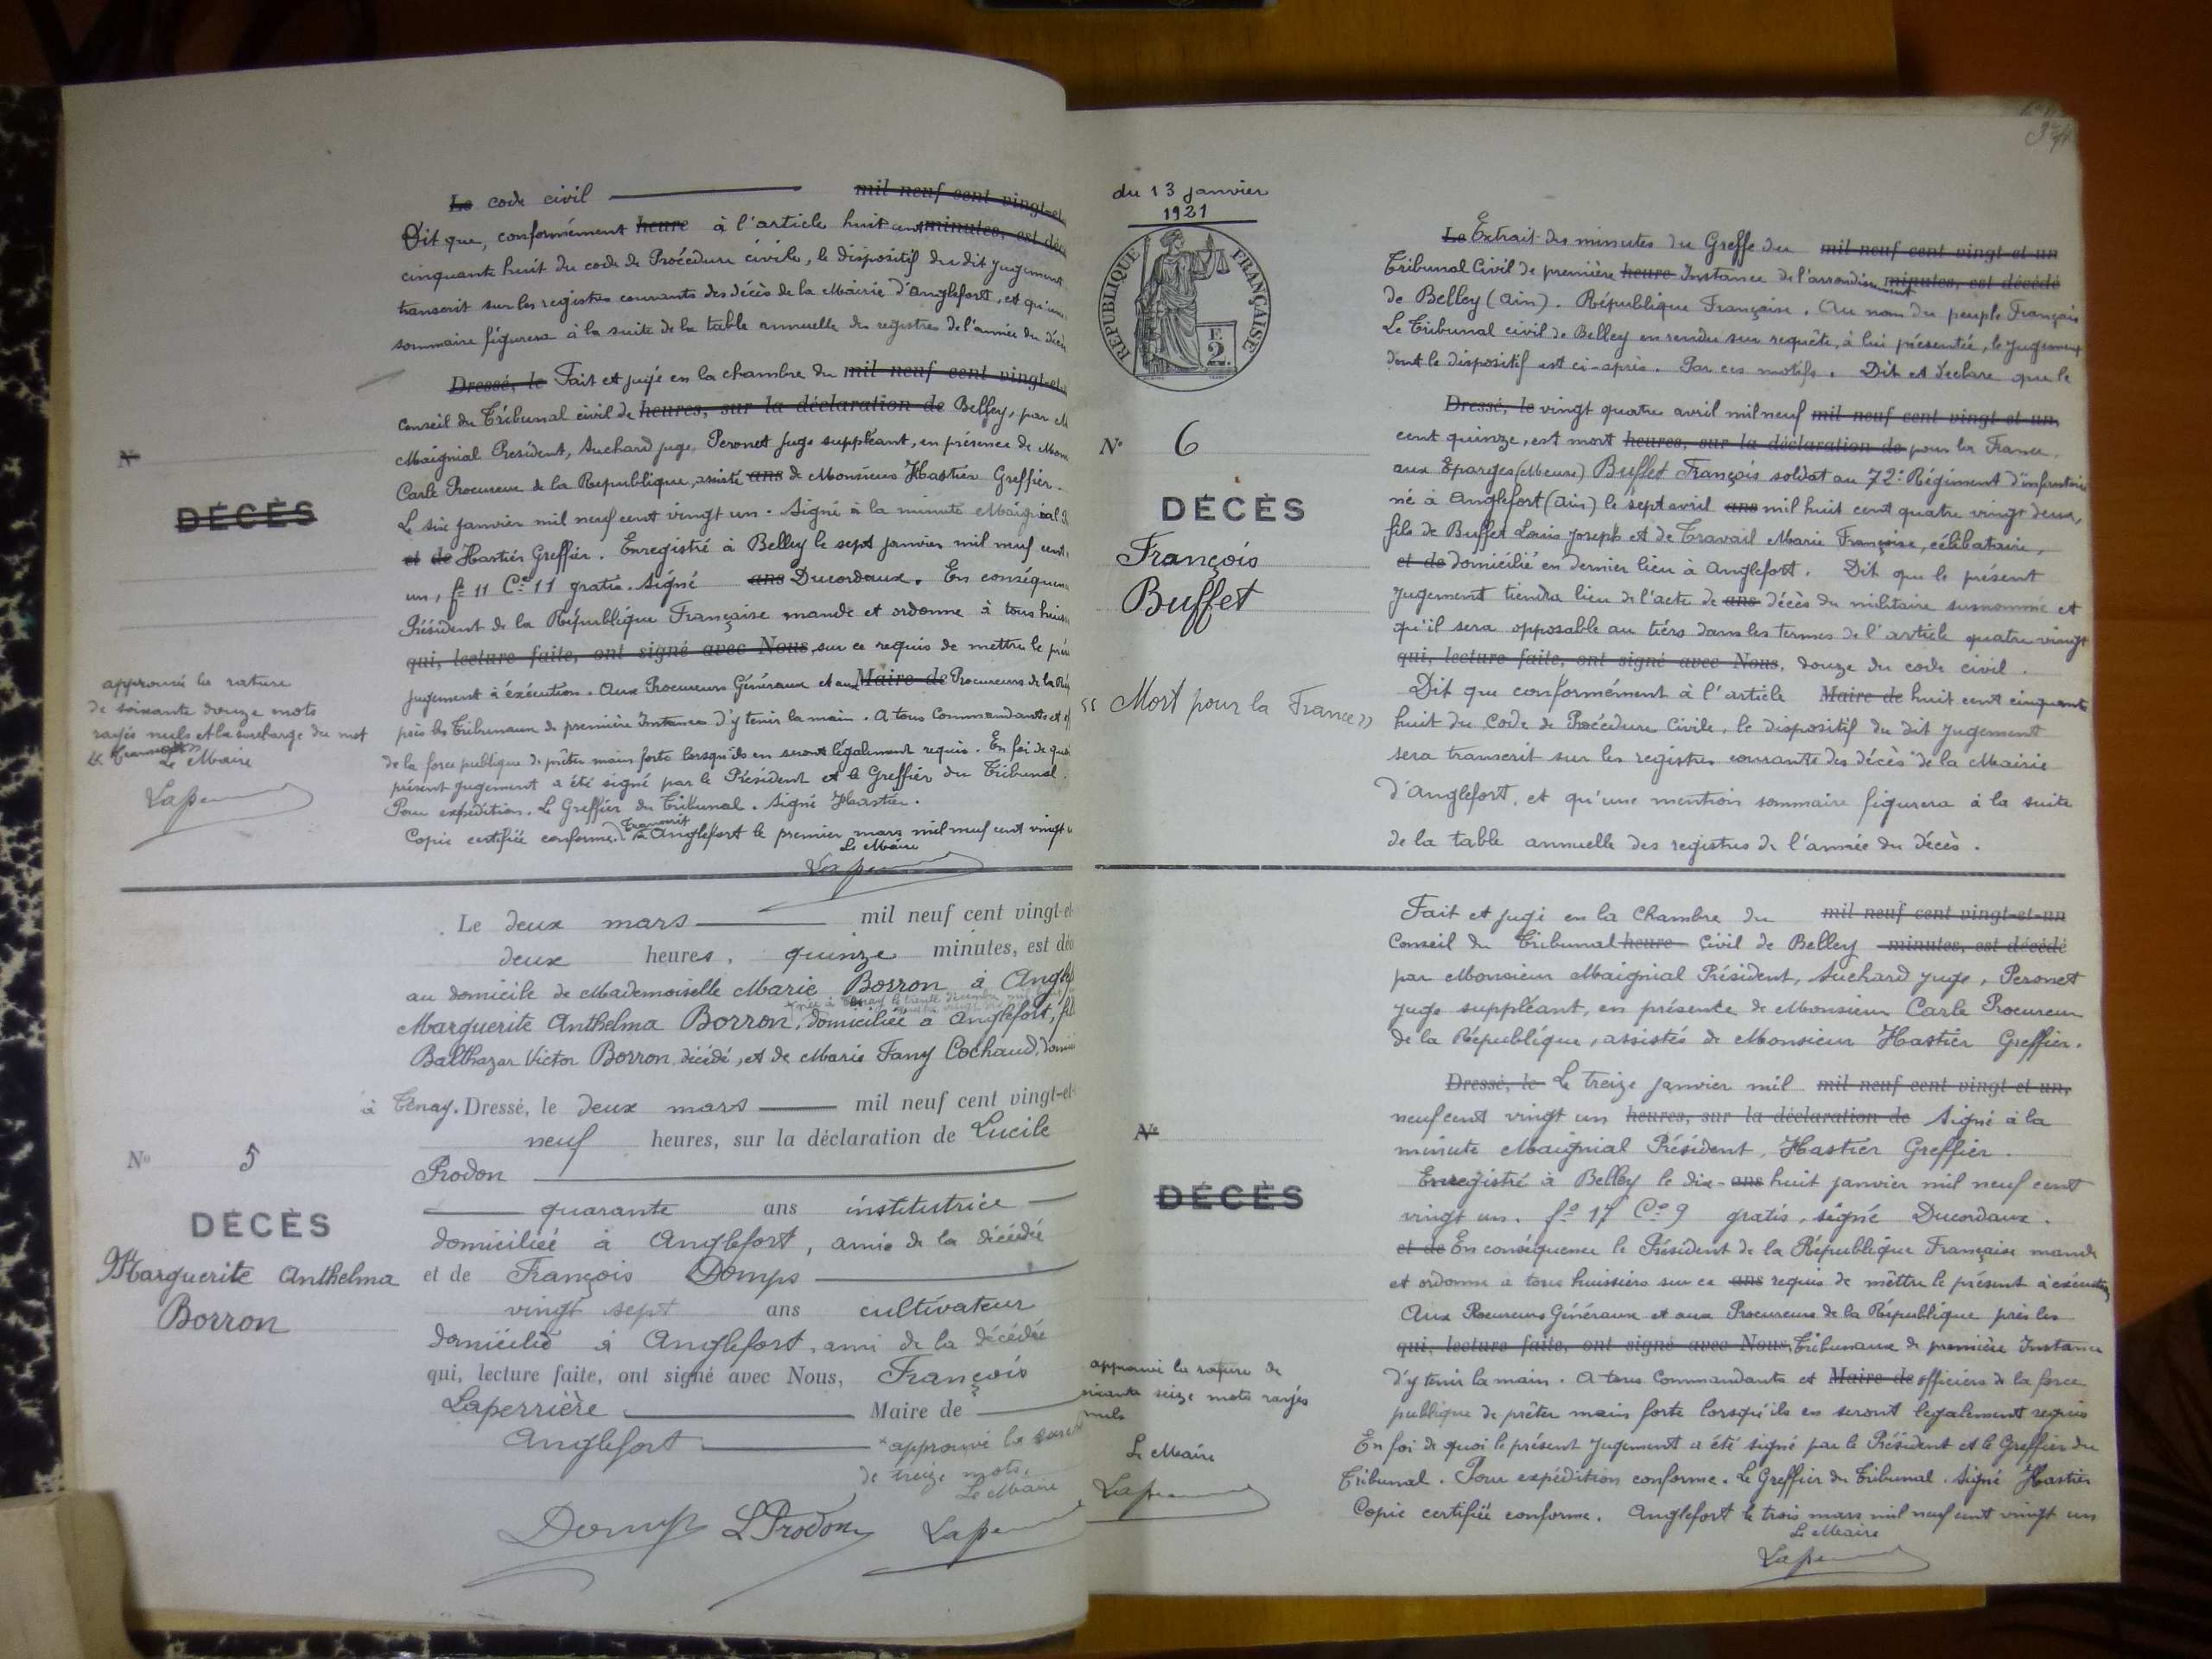 Le code civil mil neuf cent vingt-et
Dit que, conformément heure à l'article huit cent minutes, est déc
cinquante huit du code de Procédure civile, le dispositif du dit jugement
transcrit sur les registres courants des décès de la Mairie d'Anglefort, et qu'une
sommaire figurera à la suite de la table annuelle des registres de l'année du décès
Dressé, le Fait et jugé en la chambre du mil neuf cent vingt-et
Conseil du Tribunal civil de heures, sur la déclaration de Belley, par M
Maignial Président, Suchard juge, Peronet juge suppléant, en présence de Mon
Carle Procureur de la République, assisté ans de Monsieur Hastier Greffier.
Le six janvier mil neuf cent vingt un. Signé à la minute Maignial
et de Hastier Greffier. Enregistré à Belley le sept janvier mil neuf cent
un, fo 11 Ce 11 gratis. Signé ans Ducordaux. En conséquen
Président de la République Française mande et ordonne à tous huis
qui, lecture faite, ont signé avec Nous, sur ce requis de mettre le pré
jugement à éxécution. Aux Procureurs Généraux et aux Maire de Procureurs de la Ré
près les Tribunaux de première Instance d'y tenir la main. A tous Commandants et
de la force publique de prêter main forte lorsqu'ils en seront légalement requis. En foi de quoi
présent jugement a été signé par le Président et le Greffier du Tribunal.
Pour expédition. Le Greffier du Tribunal. Signé Hastier.
Copie certifiée conforme. Transcrit à Anglefort le premier mars mil neuf cent vingt
Le Maire
No
DÉCÈS
approuvé la rature
de soixante douze mots
rayés nuls et la surcharge du mot
« Transcrit »
Le Maire
Le deux mars mil neuf cent vingt-et
deux heures, quinze minutes, est déc
au domicile de Mademoiselle Marie Borron à Angle
Marguerite Anthelma Borron, domiciliée à Anglefort, fil
Balthazar Victor Borron, décédé, et de Marie Fany Cochaud, domi
à Tenay. Dressé, le deux mars mil neuf cent vingt-et
neuf heures, sur la déclaration de Lucile
Prodon
quarante ans institutrice
domiciliée à Anglefort, amie de la décédée
et de François Domps
vingt sept ans cultivateur
domicilié à Anglefort, ami de la décédée
qui, lecture faite, ont signé avec Nous, François
Laperrière Maire de
Anglefort
approuvé la
de treize mots.
Le Maire
Domps L Prodon
No 5
DÉCÈS
Marguerite Anthelma
Borron
du 13 janvier
1921
RÉPUBLIQUE FRANÇAISE
F.
2
No 6
DÉCÈS
François
Buffet
« Mort pour la France »
Le Extrait des minutes du Greffe du mil neuf cent vingt-et-un
Tribunal Civil de première heure Instance de l'arrondissement minutes, est décédé
de Belley (Ain). République Française. Au nom du peuple Français
Le Tribunal civil de Belley en rendu sur requête, à lui présentée, le jugement
dont le dispositif est ci-après. Par ces motifs. Dit et déclare que le
Dressé, le vingt quatre avril mil neuf mil neuf cent vingt-et-un,
cent quinze, est mort heures, sur la déclaration de pour la France.
aux Eparges (Meuse) Buffet François soldat au 72e Régiment d'infanterie
né à Anglefort (Ain) le sept avril ans mil huit cent quatre vingt deux,
fils de Buffet Louis Joseph et de Travail Marie Françoise, célibataire,
et de domicilié en dernier lieu à Anglefort. Dit que le présent
jugement tiendra lieu de l'acte de ans décès du militaire susnommé et
qu'il sera opposable au tiers dans les termes de l'article quatre vingt
qui, lecture faite, ont signé avec Nous, douze du code civil.
Dit que conformément à l'article Maire de huit cent cinquante
huit du Code de Procédure Civile, le dispositif du dit jugement
sera transcrit sur les registres courants des décès de la Mairie
d'Anglefort, et qu'une mention sommaire figurera à la suite
de la table annuelle des registres de l'année du décès.
Fait et jugé en la Chambre du mil neuf cent vingt-et-un
Conseil du Tribunal heure Civil de Belley minutes, est décédé
par Monsieur Maignial Président, Suchard juge, Peronet
juge suppléant, en présence de Monsieur Carle Procureur
de la République, assistés de Monsieur Hastier Greffier.
Dressé, le Le treize janvier mil mil neuf cent vingt-et-un,
neuf cent vingt un heures, sur la déclaration de Signé à la
minute Maignial Président, Hastier Greffier.
Enregistré à Belley le dix-ans huit janvier mil neuf cent
vingt un. fo 17 Ce 9 gratis, signé Ducordaux.
et de En conséquence le Président de la République Française mande
et ordonne à tous huissiers sur ce ans requis de mettre le présent à exécution
Aux Procureurs Généraux et aux Procureurs de la République près les
qui, lecture faite, ont signé avec Nous, Tribunaux de première Instance
d'y tenir la main. A tous Commandants et Maire de officiers de la force
publique de prêter main forte lorsqu'ils en seront légalement requis
En foi de quoi le présent jugement a été signé par le Président et le Greffier du
Tribunal. Pour expédition conforme. Le Greffier du Tribunal. Signé Hastier
Copie certifiée conforme. Anglefort le trois mars mil neuf cent vingt un
Le Maire
No
DÉCÈS
approuvé la rature de
seize mots rayés
nuls
Le Maire